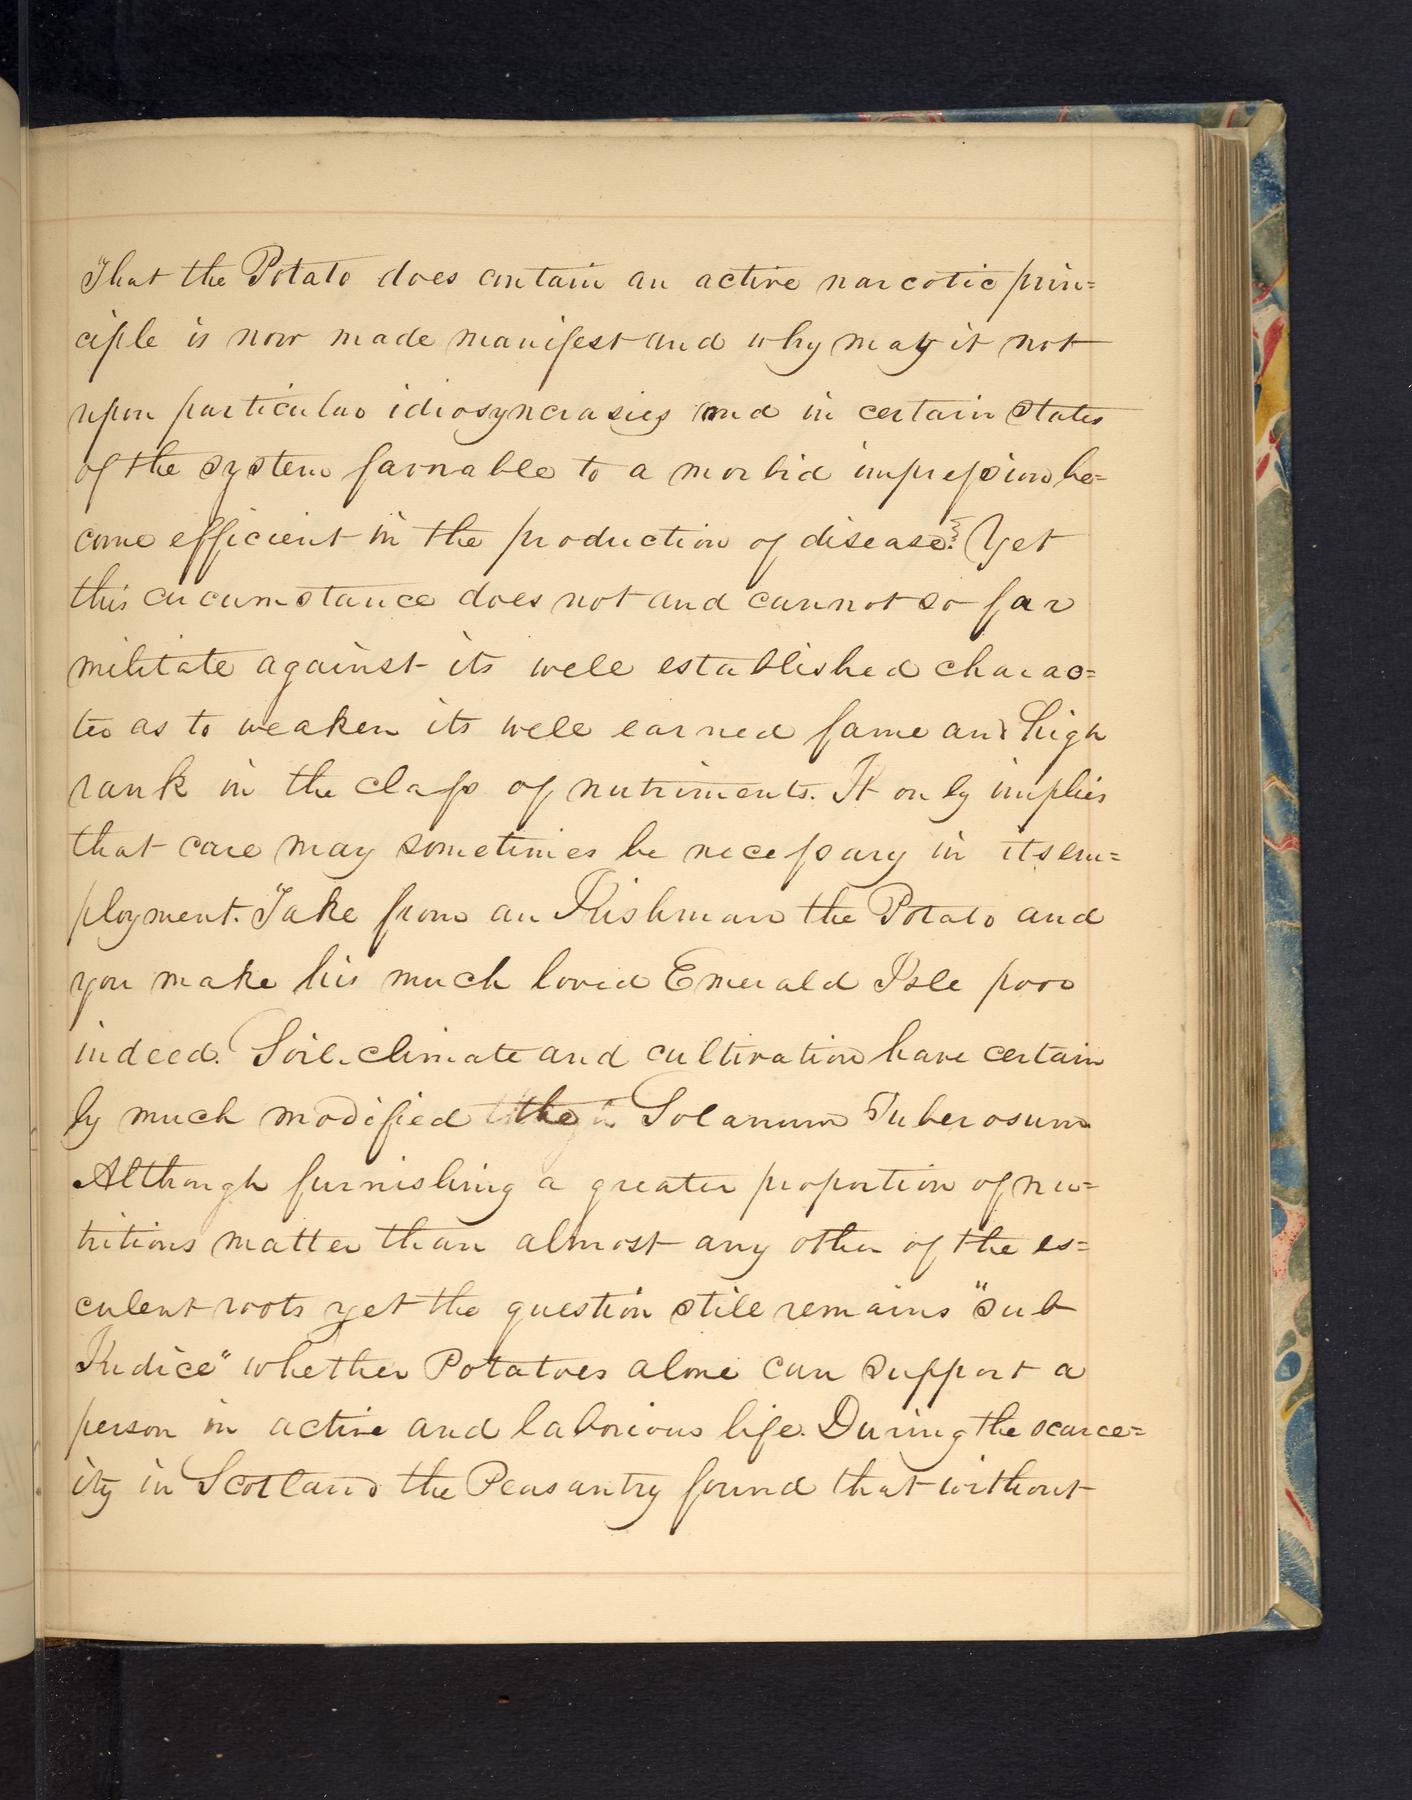 That the Potato does contain an active narcotic prin=
ciple is now made manifest and why may it not
upon particular idiosyncrasies and in certain States
of the system favorable to a morbid impression be=
come efficient in the production of disease? Yet
this circumstance does not and cannot so far
militate against its well established charac=
ter as to weaken its well earned fame and high
rank in the class of nutriments. It only implies
that care may sometimes be necessary in its em=
ployment. Take from an Irishman the Potato and
you make his much loved Emerald Isle poor
indeed. Soil climate and cultivation have certain
ly much modified the Solanum Tuberosum
Although furnishing a greater proportion of nu=
tritious matter than almost any other of the es=
culent roots yet the question still remains "sub
Judice" whether Potatoes alone can support a
person in active and laborious life. During the scarce=
ity in Scotland the Peasantry found that without